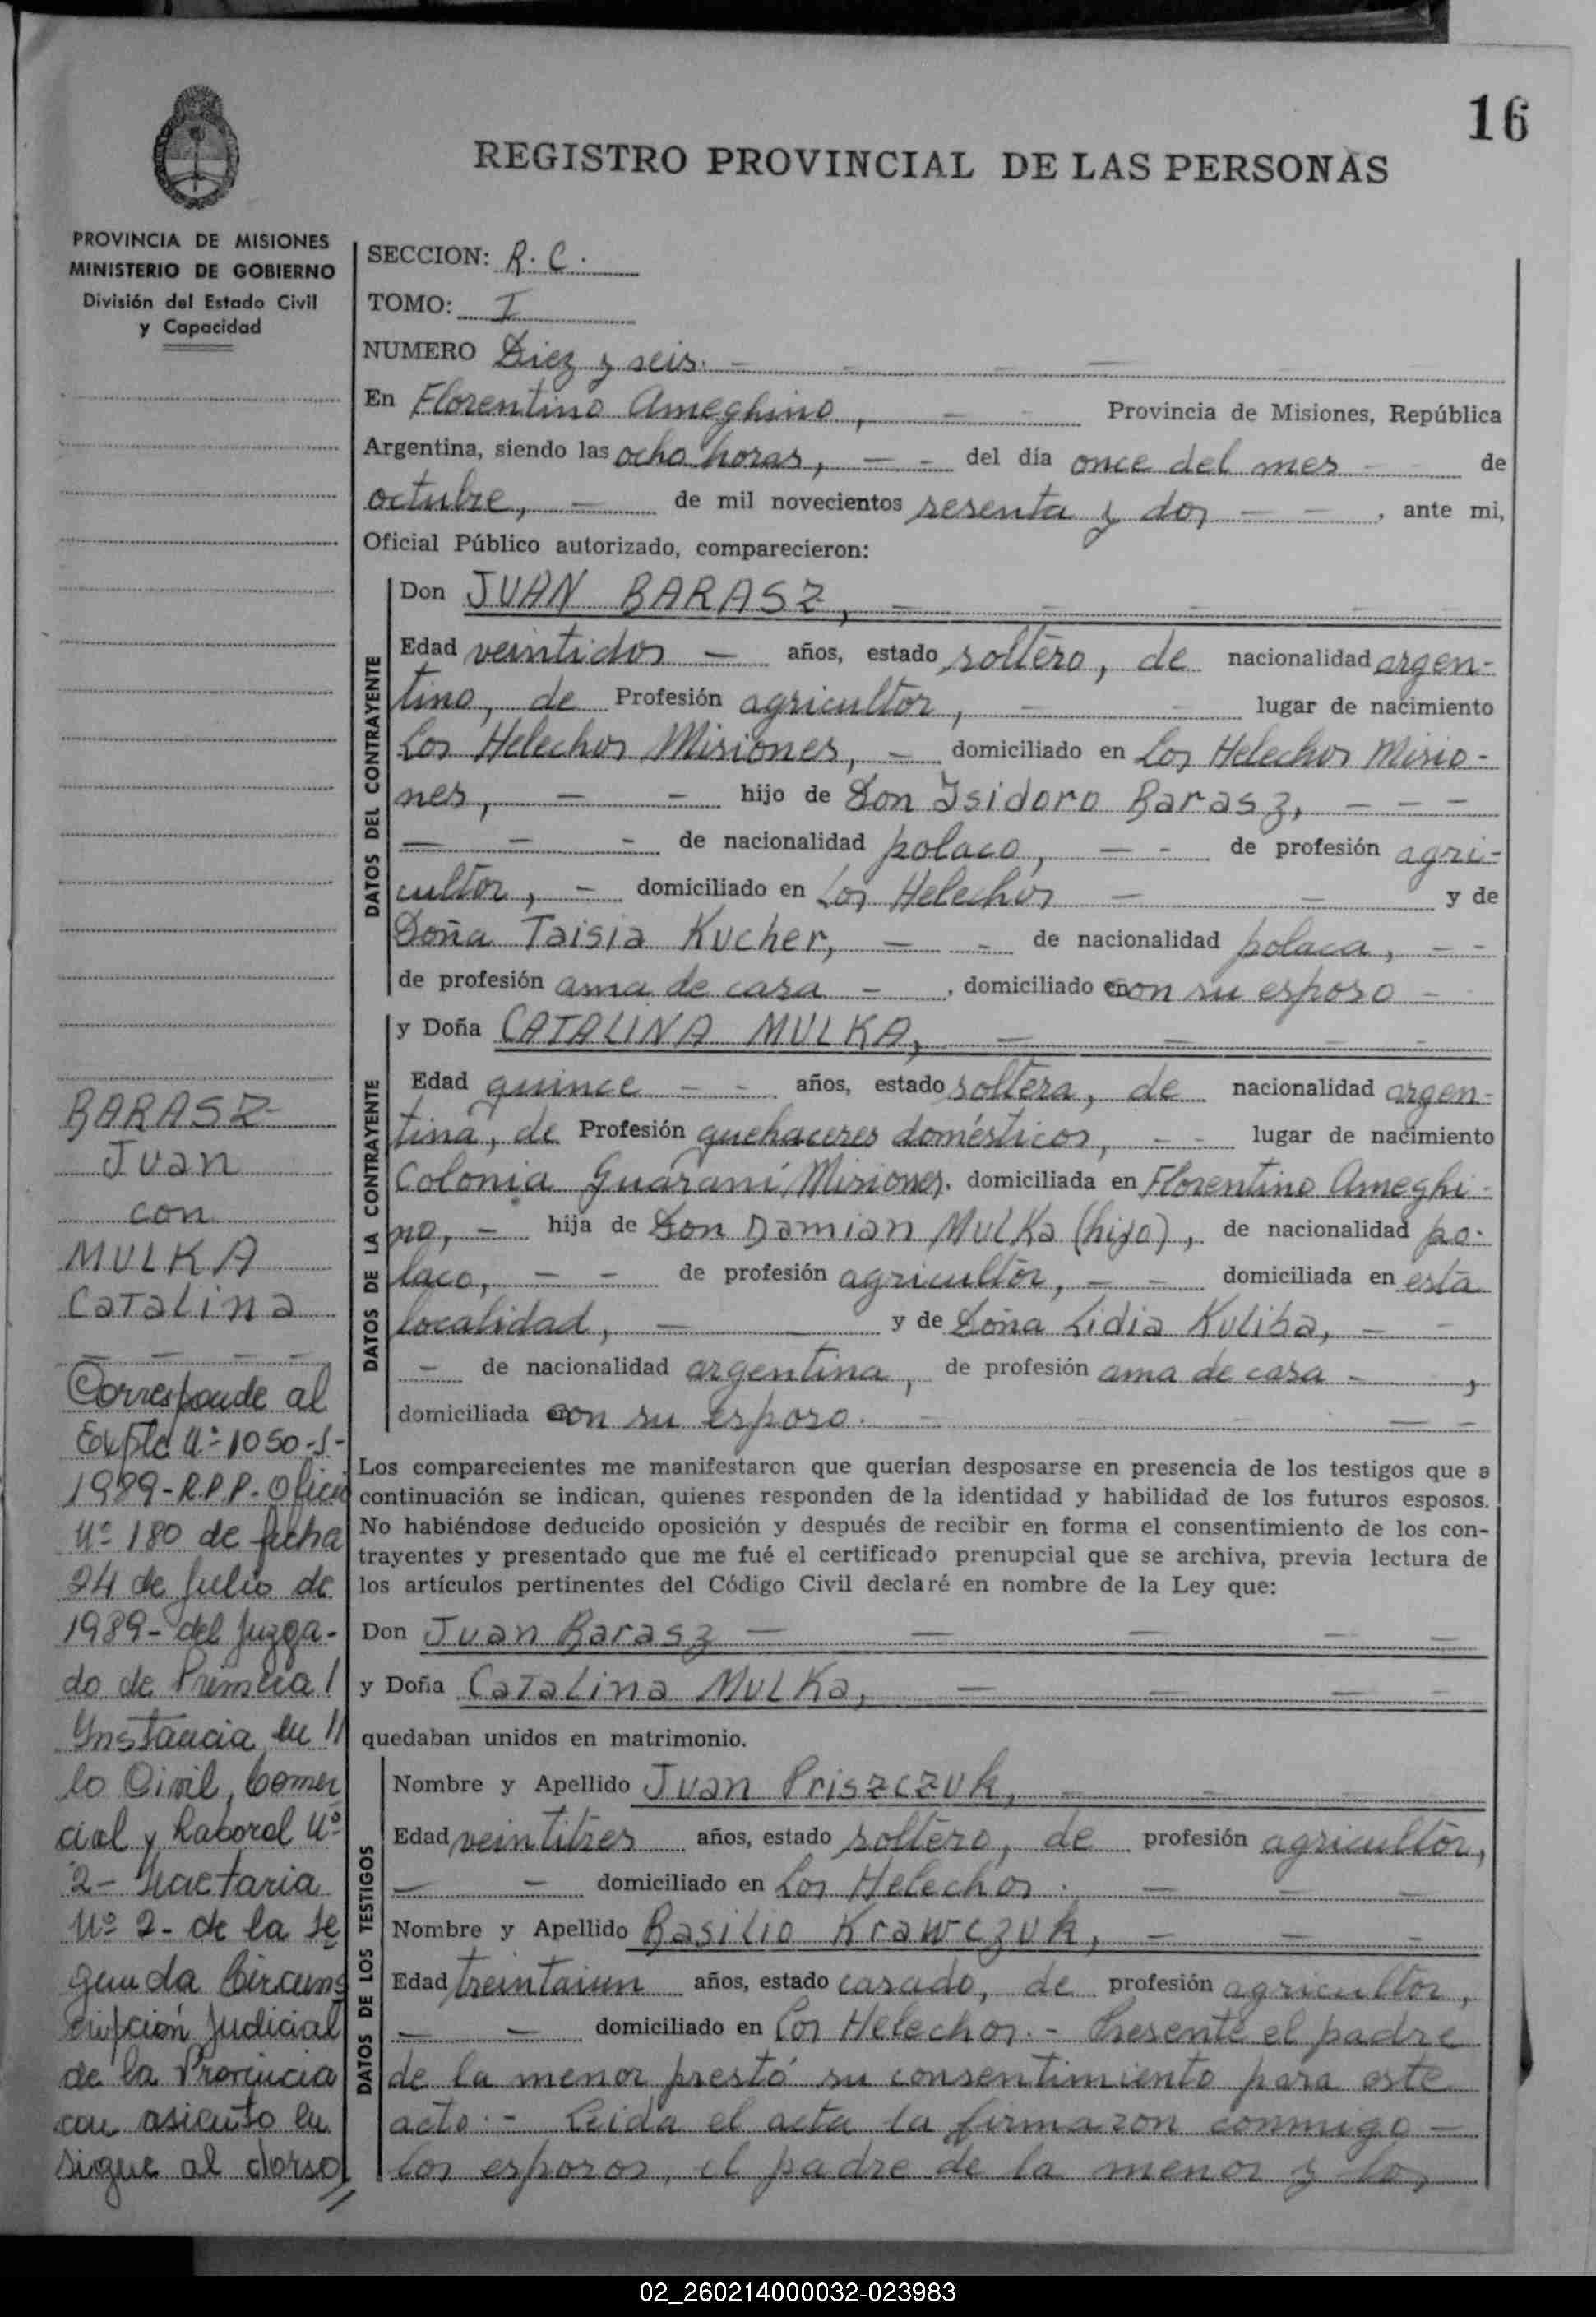 16
REGISTRO PROVINCIAL DE LAS PERSONAS
PROVINCIA DE MISIONES
MINISTERIO DE GOBIERNO
División del Estado Civil
y Capacidad
SECCION: R. C.
TOMO: I
NUMERO Diez y seis. -
En Florentino Ameghino, - Provincia de Misiones, República
Argentina, siendo las ocho horas, - - del día once del mes - de
octubre, - de mil novecientos sesenta y dos - - , ante mi,
Oficial Público autorizado, comparecieron:
DATOS DEL CONTRAYENTE
Don JUAN BARASZ, -
Edad veintidos - años, estado soltero, de nacionalidad argen-
tino, de Profesión agricultor, - - lugar de nacimiento
Los Helechos Misiones, - domiciliado en Los Helechos Misio-
nes, - - hijo de Don Isidoro Barasz, - - -
- - - de nacionalidad polaco, - - de profesión agri-
cultor, - domiciliado en Los Helechos - - y de
Doña Taisia Kucher, - - de nacionalidad polaca, - -
de profesión ama de casa - , domiciliado con su esposo -
DATOS DE LA CONTRAYENTE
y Doña CATALINA MULKA, -
Edad quince - - años, estado soltera, de nacionalidad argen-
tina, de Profesión quehaceres domésticos, - - lugar de nacimiento
Colonia Guaraní Misiones, domiciliada en Florentino Ameghi-
no, - hija de Don Damian Mulka (hijo), de nacionalidad po-
laco, - - de profesión agricultor, - - domiciliada en esta
localidad, - y de Doña Lidia Kuliba, - -
- de nacionalidad argentina, de profesión ama de casa - ,
domiciliada con su esposo. -
Los comparecientes me manifestaron que querían desposarse en presencia de los testigos que a
continuación se indican, quienes responden de la identidad y habilidad de los futuros esposos.
No habiéndose deducido oposición y después de recibir en forma el consentimiento de los con-
trayentes y presentado que me fué el certificado prenupcial que se archiva, previa lectura de
los artículos pertinentes del Código Civil declaré en nombre de la Ley que:
Don Juan Barasz -
y Doña Catalina Mulka, -
quedaban unidos en matrimonio.
DATOS DE LOS TESTIGOS
Nombre y Apellido Juan Priszczuk, -
Edad veintitres años, estado soltero, de profesión agricultor,
- - domiciliado en Los Helechos. -
Nombre y Apellido Basilio Krawczuk, -
Edad treintaiun años, estado casado, de profesión agricultor,
- - domiciliado en Los Helechos. - Presente el padre
de la menor prestó su consentimiento para este
acto. - Leida el acta la firmaron conmigo -
los esposos, el padre de la menor y los
BARASZ
Juan
con
MULKA
Catalina
Corresponde al
Expte Nº 1050-S-
1989-R.P.P. Oficio
Nº 180 de fecha
24 de Julio de
1989- del Juzga-
do de Primera /
Instancia en //
lo Civil, Comer
cial y Laboral Nº
2- Secretaria
Nº 2- de la Se
gunda Circuns
cripción Judicial
de la Provincia
con asiento en
sigue al dorso //
02_260214000032-023983